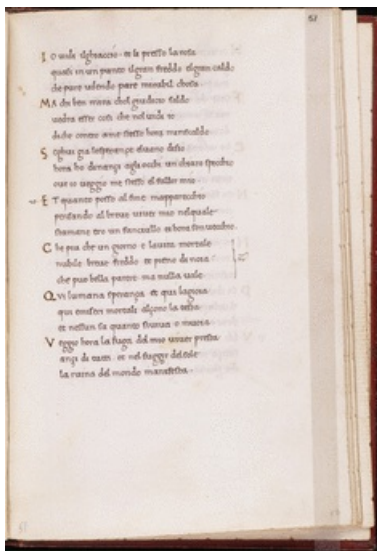 57
I O vidi il ghiaccio et li presso la rosa
quasi in un punto il gran freddo el gran caldo
che pure udendo pare mirabil chosa
MA chi ben mira chol giudicio saldo
vedra esser cosi che nol vidi io
di che contro a me stesso hora mi riscaldo
S eghui gia le sperançe el vano disio
hora ho dinançi agli occhi un chiaro specchio
oue io ueggio me stesso el fallir mio
E T quanto posso al fine mapparecchio
pensando al breue uiuer mio nel quale
stamane ero un fanciullo et hora son uecchio
C he piu che un giorno e la uita mortale
nubile breue freddo et pieno di noia
che puo bella parere ma nulla uale
Q Vi lumana sperança et qui la gioia
qui miseri mortali alçono la testa
et nessun sa quanto si uiua o muoia
V eggio hora la fuga del mio uiuer presta
ançi di tutti et nel fuggir del sole
la ruina del mondo manifesta